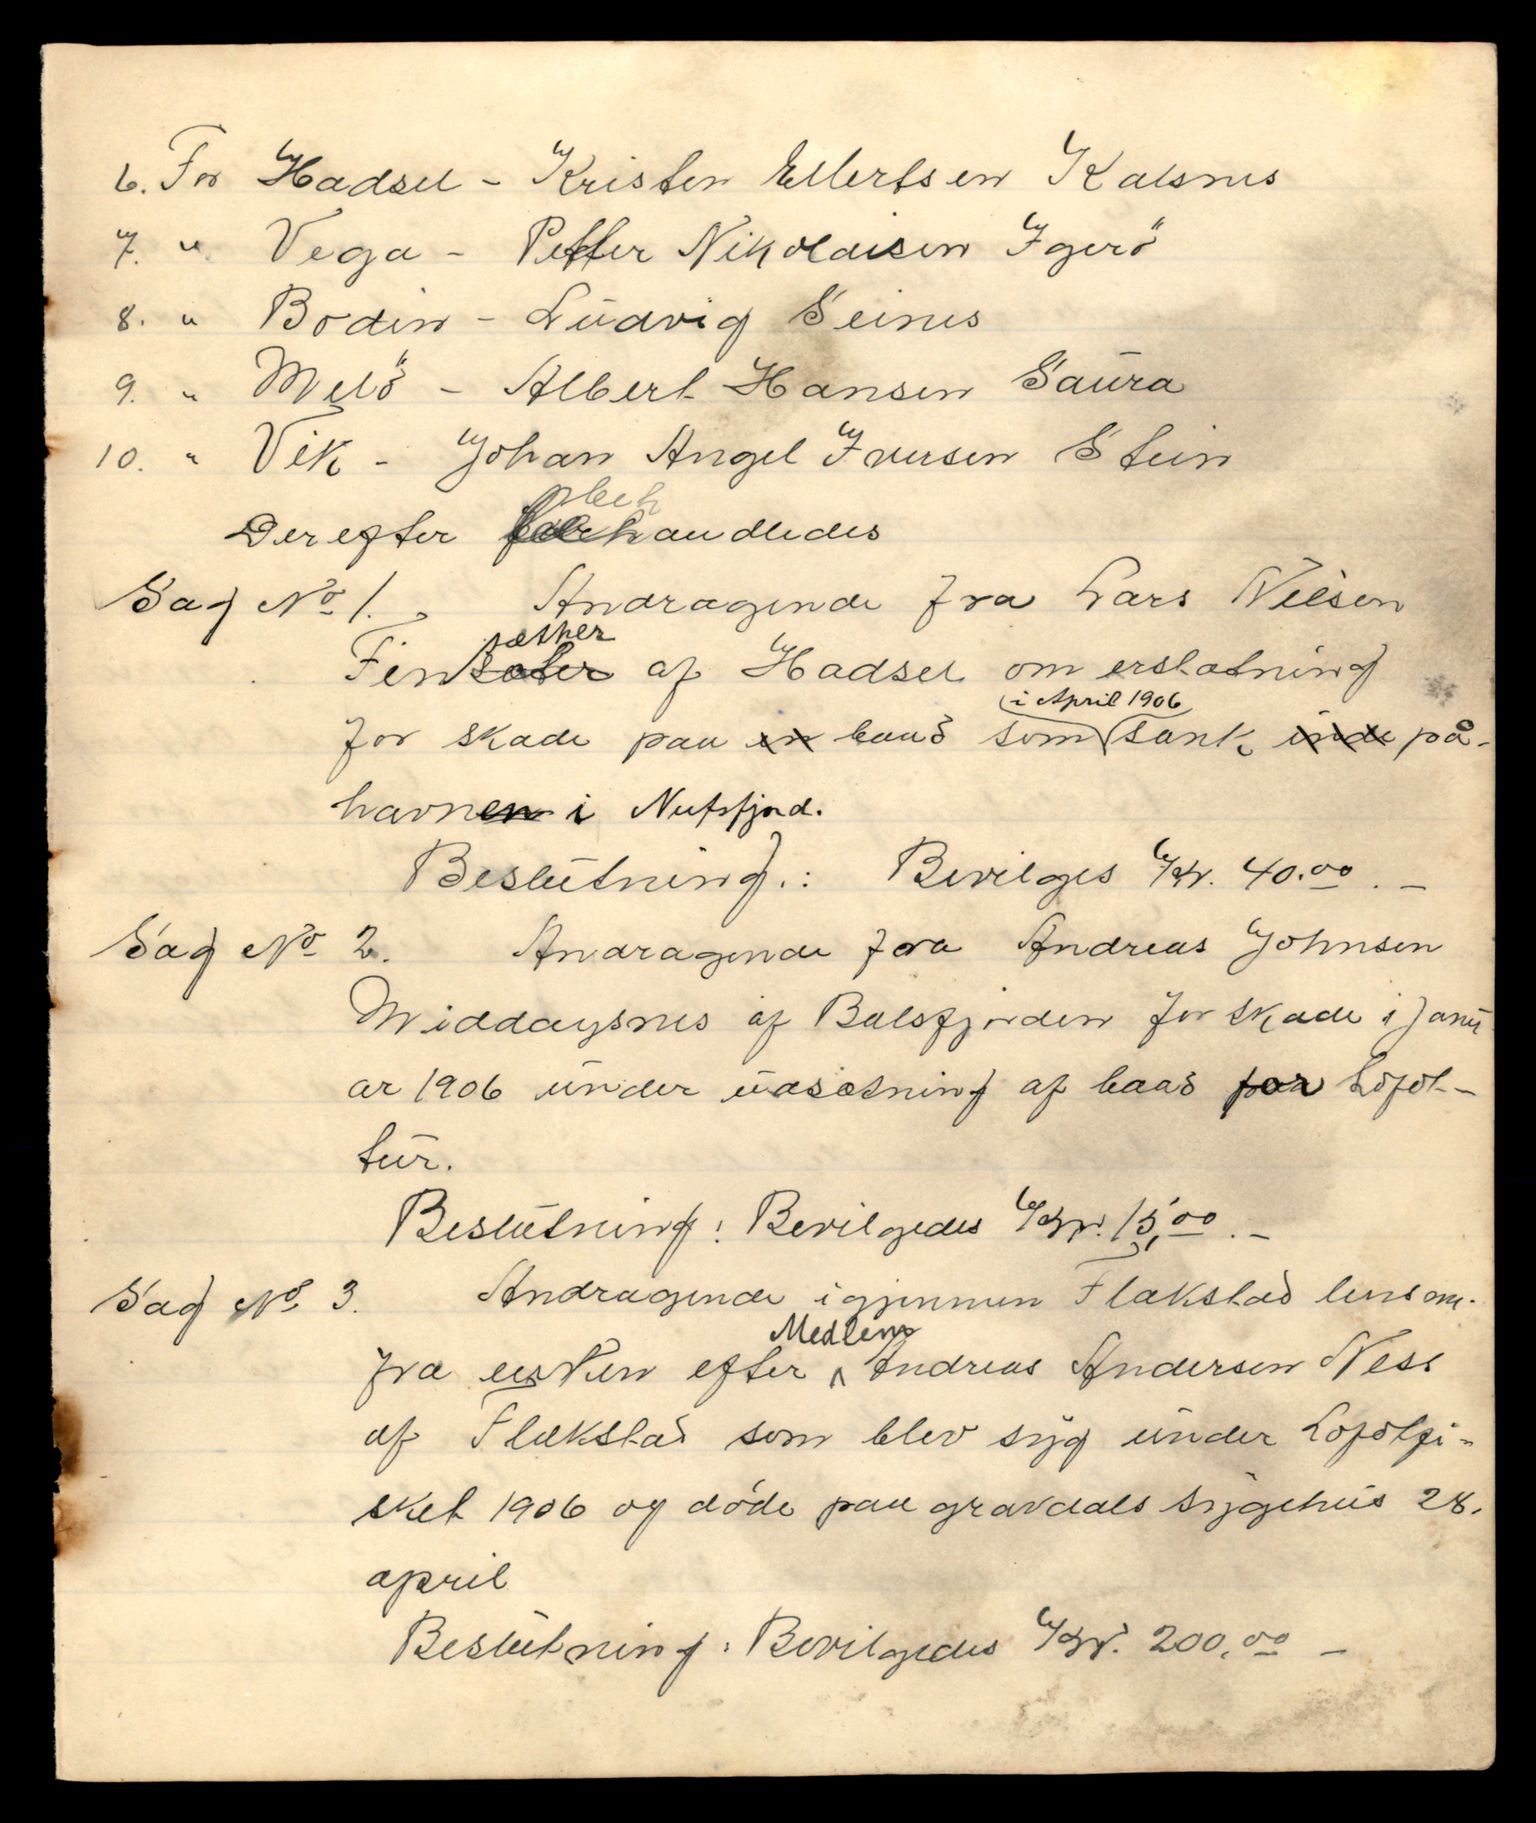 6. For Hadsel - Kristen Ellertsen Kalsnes
7. " Vega - Petter Nikolaisen Igerö
8. " Bodin - Ludvig Seines
9. " Melö - Albert Hansen Saura
10. " Vik - Johan Angel Iversen Stein
Derefter behandledes
Sag No 1. Andragende fra Lars Nilsen
Finsæther af Hadsel om erstatning
for skade paa en baad som i April 1906 sank inde på-
havnen i Nufsfjord.
Beslutning.: Bevilges Kr. 40.00. -
Sag No 2. Andragende fra Andreas Johnsen
Middagsnes af Balsfjorden for skade i Janu
ar 1906 under udsætning af baad for Lofot-
tur.
Beslutning: Bevilgedes Kr. 15,00. -
Sag No 3. Andragende igjennem Flakstad lensm.
fra enken efter Medlem Andreas Andersen Ness
af Flakstad som blev syg under Lofotfi-
sket 1906 og døde paa gravdals sygehus 28.
april
Beslutning: Bevilgedes Kr. 200,00 -